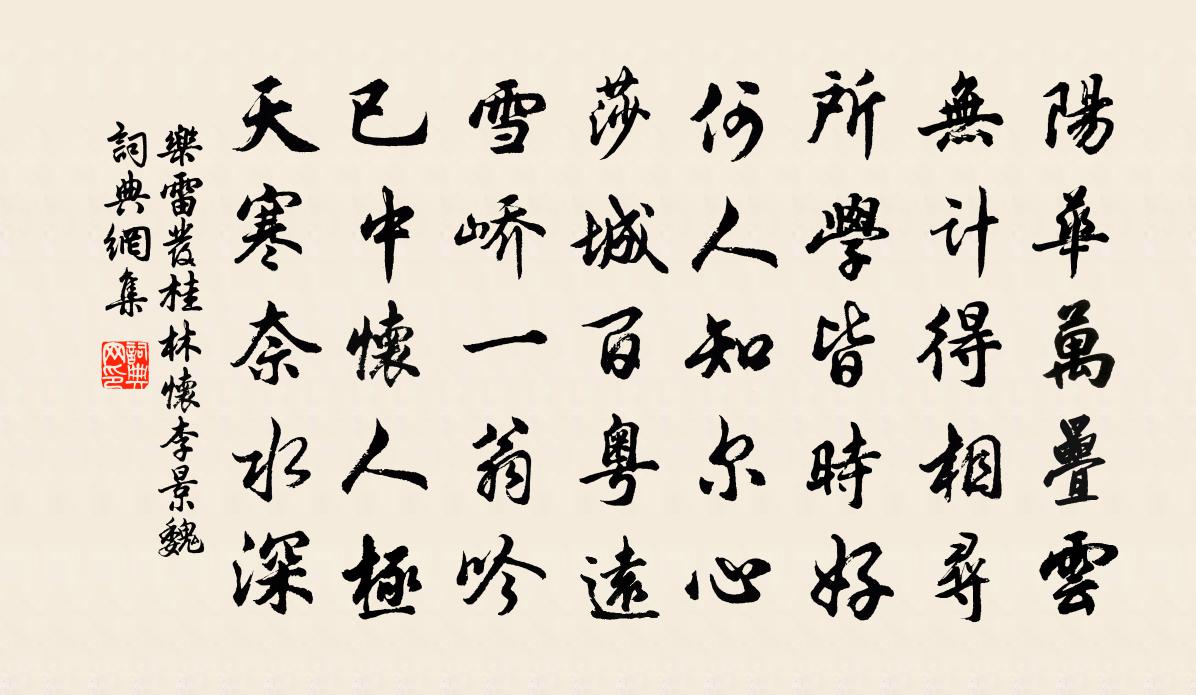 陽華萬疊雲
無計得相尋
所學皆時好
何人知尔心
莎城百粵遠
雪嶠一翁吟
已中懷人極
天寒奈水深
樂雷發桂林懷李景魏
詞典網集
詞典网印